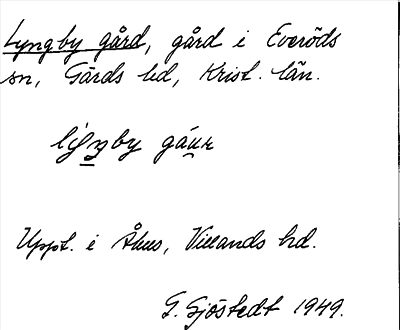 Lyngby gård, gård i Everöds
sn, Gärds hd, Krist. län.
gáu̲r
Uppt. i Åhus, Villands hd.
G. Sjöstedt 1949.